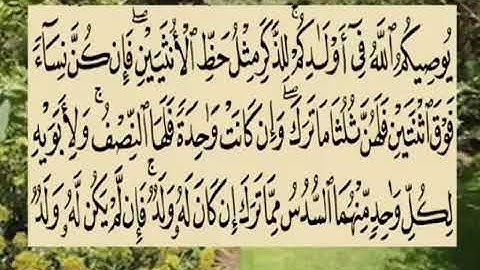 يُوصِيكُمُ ٱللَّهُ فِىٓ أَوْلَٰدِكُمْ ۖ لِلذَّكَرِ مِثْلُ حَظِّ ٱلْأُنثَيَيْنِ ۚ فَإِن كُنَّ نِسَآءً
فَوْقَ ٱثْنَتَيْنِ فَلَهُنَّ ثُلُثَا مَا تَرَكَ ۖ وَإِن كَانَتْ وَٰحِدَةً فَلَهَا ٱلنِّصْفُ ۚ وَلِأَبَوَيْهِ
لِكُلِّ وَٰحِدٍ مِّنْهُمَا ٱلسُّدُسُ مِمَّا تَرَكَ إِن كَانَ لَهُۥ وَلَدٌ ۚ فَإِن لَّمْ يَكُن لَّهُۥ وَلَدٌ